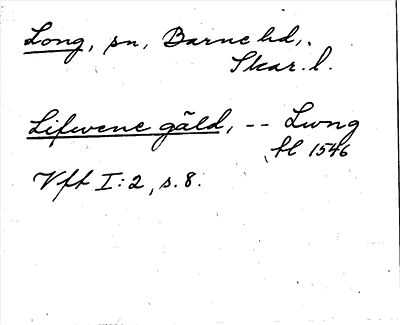 Long, sn, Barne hd,.
Skar. l.
Lifwene gäld, -- Lwng
hl 1546
Vft I:2, s. 8.